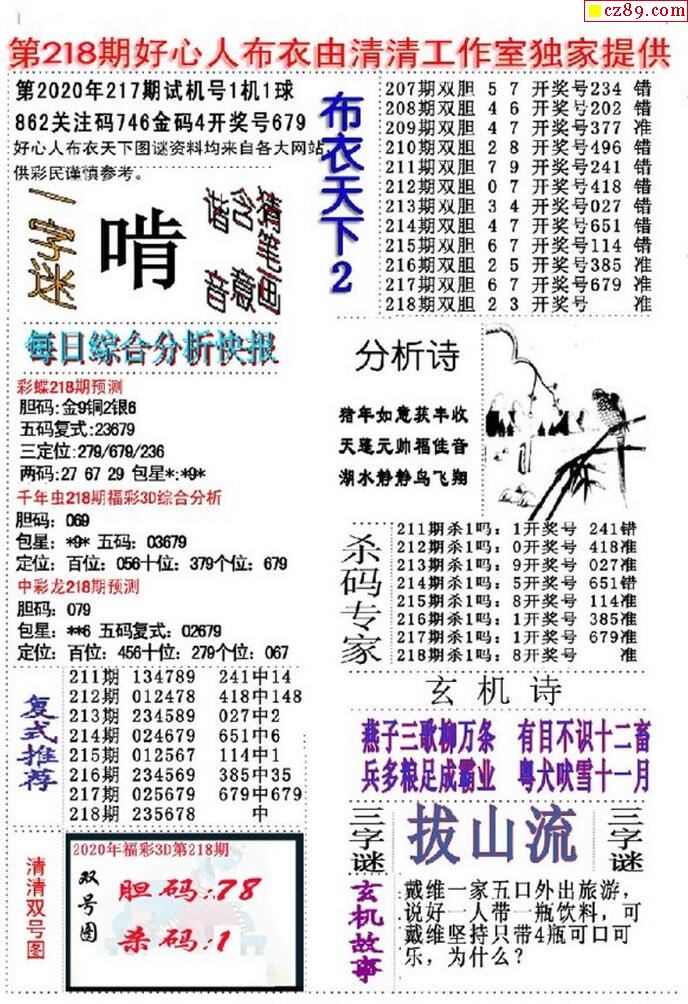 cz89.com
第218期好心人布衣由清清工作室独家提供
第2020年217期试机号1机1球
862关注码746金码4开奖号679
好心人布衣天下图谜资料均来自各大网站,
供彩民谨慎参考。
一字迷
啃
谐音
含意
猪笔画
布衣天下2
207期双胆 5 7 开奖号234 错
208期双胆 4 6 开奖号202 错
209期双胆 4 7 开奖号377 准
210期双胆 2 8 开奖号496 错
211期双胆 7 9 开奖号241 错
212期双胆 0 7 开奖号418 错
213期双胆 3 4 开奖号027 错
214期双胆 4 7 开奖号651 错
215期双胆 6 7 开奖号114 错
216期双胆 2 5 开奖号385 准
217期双胆 6 7 开奖号679 准
218期双胆 2 3 开奖号 准
每日综合分析快报
彩蝶218期预测
胆码:金9铜2银6
五码复式:23679
三定位:279/679/236
两码:27 67 29 包星*:*9*
千年虫218期福彩3D综合分析
胆码: 069
包星: *9* 五码: 03679
定位: 百位: 056十位: 379个位: 679
中彩龙218期预测
胆码: 079
包星: **6 五码复式: 02679
定位: 百位: 456十位: 279个位: 067
分析诗
猪年如意获丰收
天蓬元帅福佳音
湖水静静鸟飞翔
杀码专家
211期杀1吗: 1开奖号 241错
212期杀1吗: 0开奖号 418准
213期杀1吗: 9开奖号 027准
214期杀1吗: 5开奖号 651错
215期杀1吗: 8开奖号 114准
216期杀1吗: 1开奖号 385准
217期杀1吗: 1开奖号 679准
218期杀1吗: 8开奖号 准
复式推荐
211期 134789 241中14
212期 012478 418中148
213期 234589 027中2
214期 024679 651中6
215期 012567 114中1
216期 234569 385中35
217期 025679 679中679
218期 235678 中
玄机诗
燕子三歌柳万条 有目不识十二畜
兵多粮足成霸业 粤犬吠雪十一月
三字谜
拔山流
三字谜
清清双号图
2020年福彩3D第218期
双号图
胆码:78
杀码:1
玄机故事
戴维一家五口外出旅游,
说好一人带一瓶饮料,可
戴维坚持只带4瓶可口可
乐,为什么?